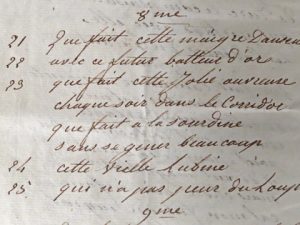 8me
21 Que fait cette maigre Danseu
22 avec ce futur batteur d'ors
23 que fait cette Jolie ouvreuse
chaque soir dans le Corridor
que fait a la sourdine
sans se gener beaucoup
24 cette vielle
25 qui n'a pas peur du Loup
9me